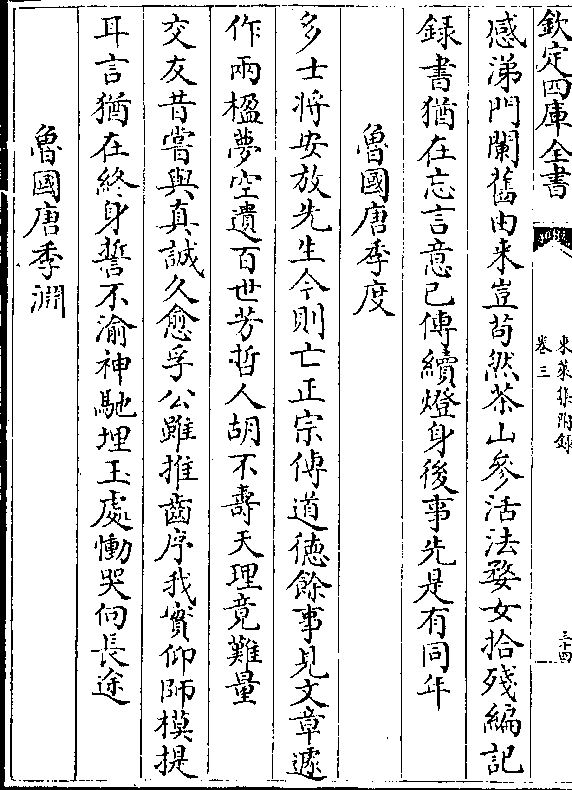 欽定四庫全書
東萊集附録
卷三
三十四
感涕門闌舊由來豈茍然茶山參活法婺女拾殘編記
録書猶在忘言意已傳續燈身後事先是有同年
魯國唐季度
多士將安放先生今則亡正宗傳道德餘事見文章遽
作兩楹夢空遺百世芳哲人胡不壽天理竟難量
交友昔嘗與真誠久愈孚公雖推齒序我實仰師模提
耳言猶在終身誓不渝神馳埋玉處慟哭向長途
魯國唐季淵